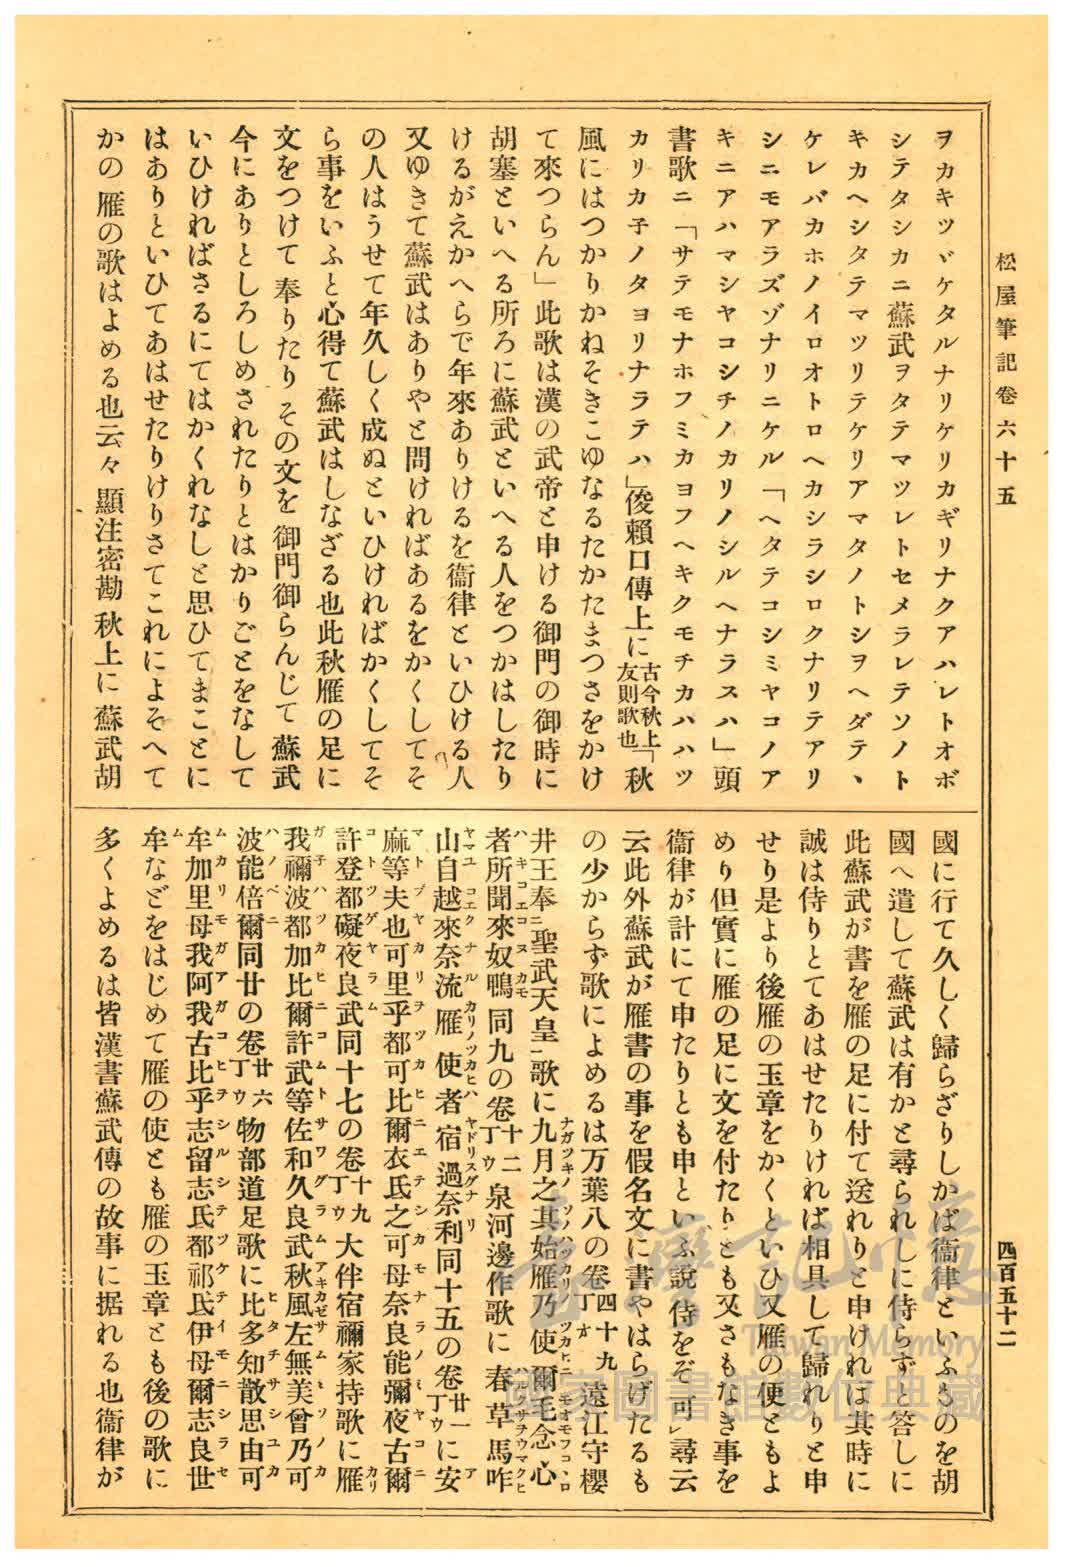 松屋筆記卷六十五
四百五十二
ヲカキツヾケタルナリケリカギリナクアハレトオボ
シテタシカニ蘇武ヲタテマツレトセメラレテソノト
キカヘシタテマツリテケリアマタノトシヲヘダテヽ
ケレバカホノイロオトロヘカシラシロクナリテアリ
シニモアラズゾナリニケル「ヘタテコシミヤコノア
キニアハマシヤコシチノカリノシルヘナラスハ」頭
書歌ニ「サテモナホフミカヨフヘキクモチカハハツ
カリカ子ノタヨリナラテハ」俊賴口傳上に古今秋上友則歌也「秋
風にはつかりかねそきこゆなるたかたまつさをかけ
て來つらん」此歌は漢の武帝と申ける御門の御時に
胡塞といへる所ろに蘇武といへる人をつかはしたり
けるがえかへらで年來ありけるを衞律といひける人
又ゆきて蘇武はありやと問ければあるをかくしてそ
の人はうせて年久しく成ぬといひければかくしてそ
ら事をいふと心得て蘇武はしなざる也此秋雁の足に
文をつけて奉りたりその文を御門御らんじて蘇武
今にありとしろしめされたりとはかりごとをなして
いひければさるにてはかくれなしと思ひてまことに
はありといひてあはせたりけりさてこれによそへて
かの雁の歌はよめる也云々顯注密勘秋上に蘇武胡
國に行て久しく歸らざりしかば衞律といふものを胡
國へ遣して蘇武は有かと尋られしに侍らずと答しに
此蘇武が書を雁の足に付て送れりと申ければ其時に
誠は侍りとてあはせたりければ相具して歸れりと申
せり是より後雁の玉章をかくといひ又雁の使ともよ
めり但實に雁の足に文を付たりとも又さもなき事を
衞律が計にて申たりとも申といふ說侍をぞ可」尋云
云此外蘇武が雁書の事を假名文に書やはらげたるも
の少からず歌によめるは万葉八の卷四十九丁オ遠江守櫻
井王奉ニ聖武天皇一歌に九月之其始雁乃使爾毛念心
者所聞來奴鴨同九の卷十二丁ウ泉河邊作歌に春草馬咋
山自越來奈流雁使者宿過奈利同十五の卷廿一丁ウに安
麻等夫也可里乎都可比爾衣氐之可母奈良能彌夜古爾
許登都礙夜良武同十七の卷十九丁ウ大伴宿禰家持歌に雁
我禰波都加比爾許武等佐和久良武秋風左無美曾乃可
波能倍爾同廿の卷廿六丁ウ物部道足歌に比多知散思由可
牟加里母我阿我古比乎志留志氐都祁氐伊母爾志良世
牟などをはじめて雁の使とも雁の玉章とも後の歌に
多くよめるは皆漢書蘇武傳の故事に据れる也衞律が
臺灣記憶
Taiwan Memory
國家圖書館數位典藏